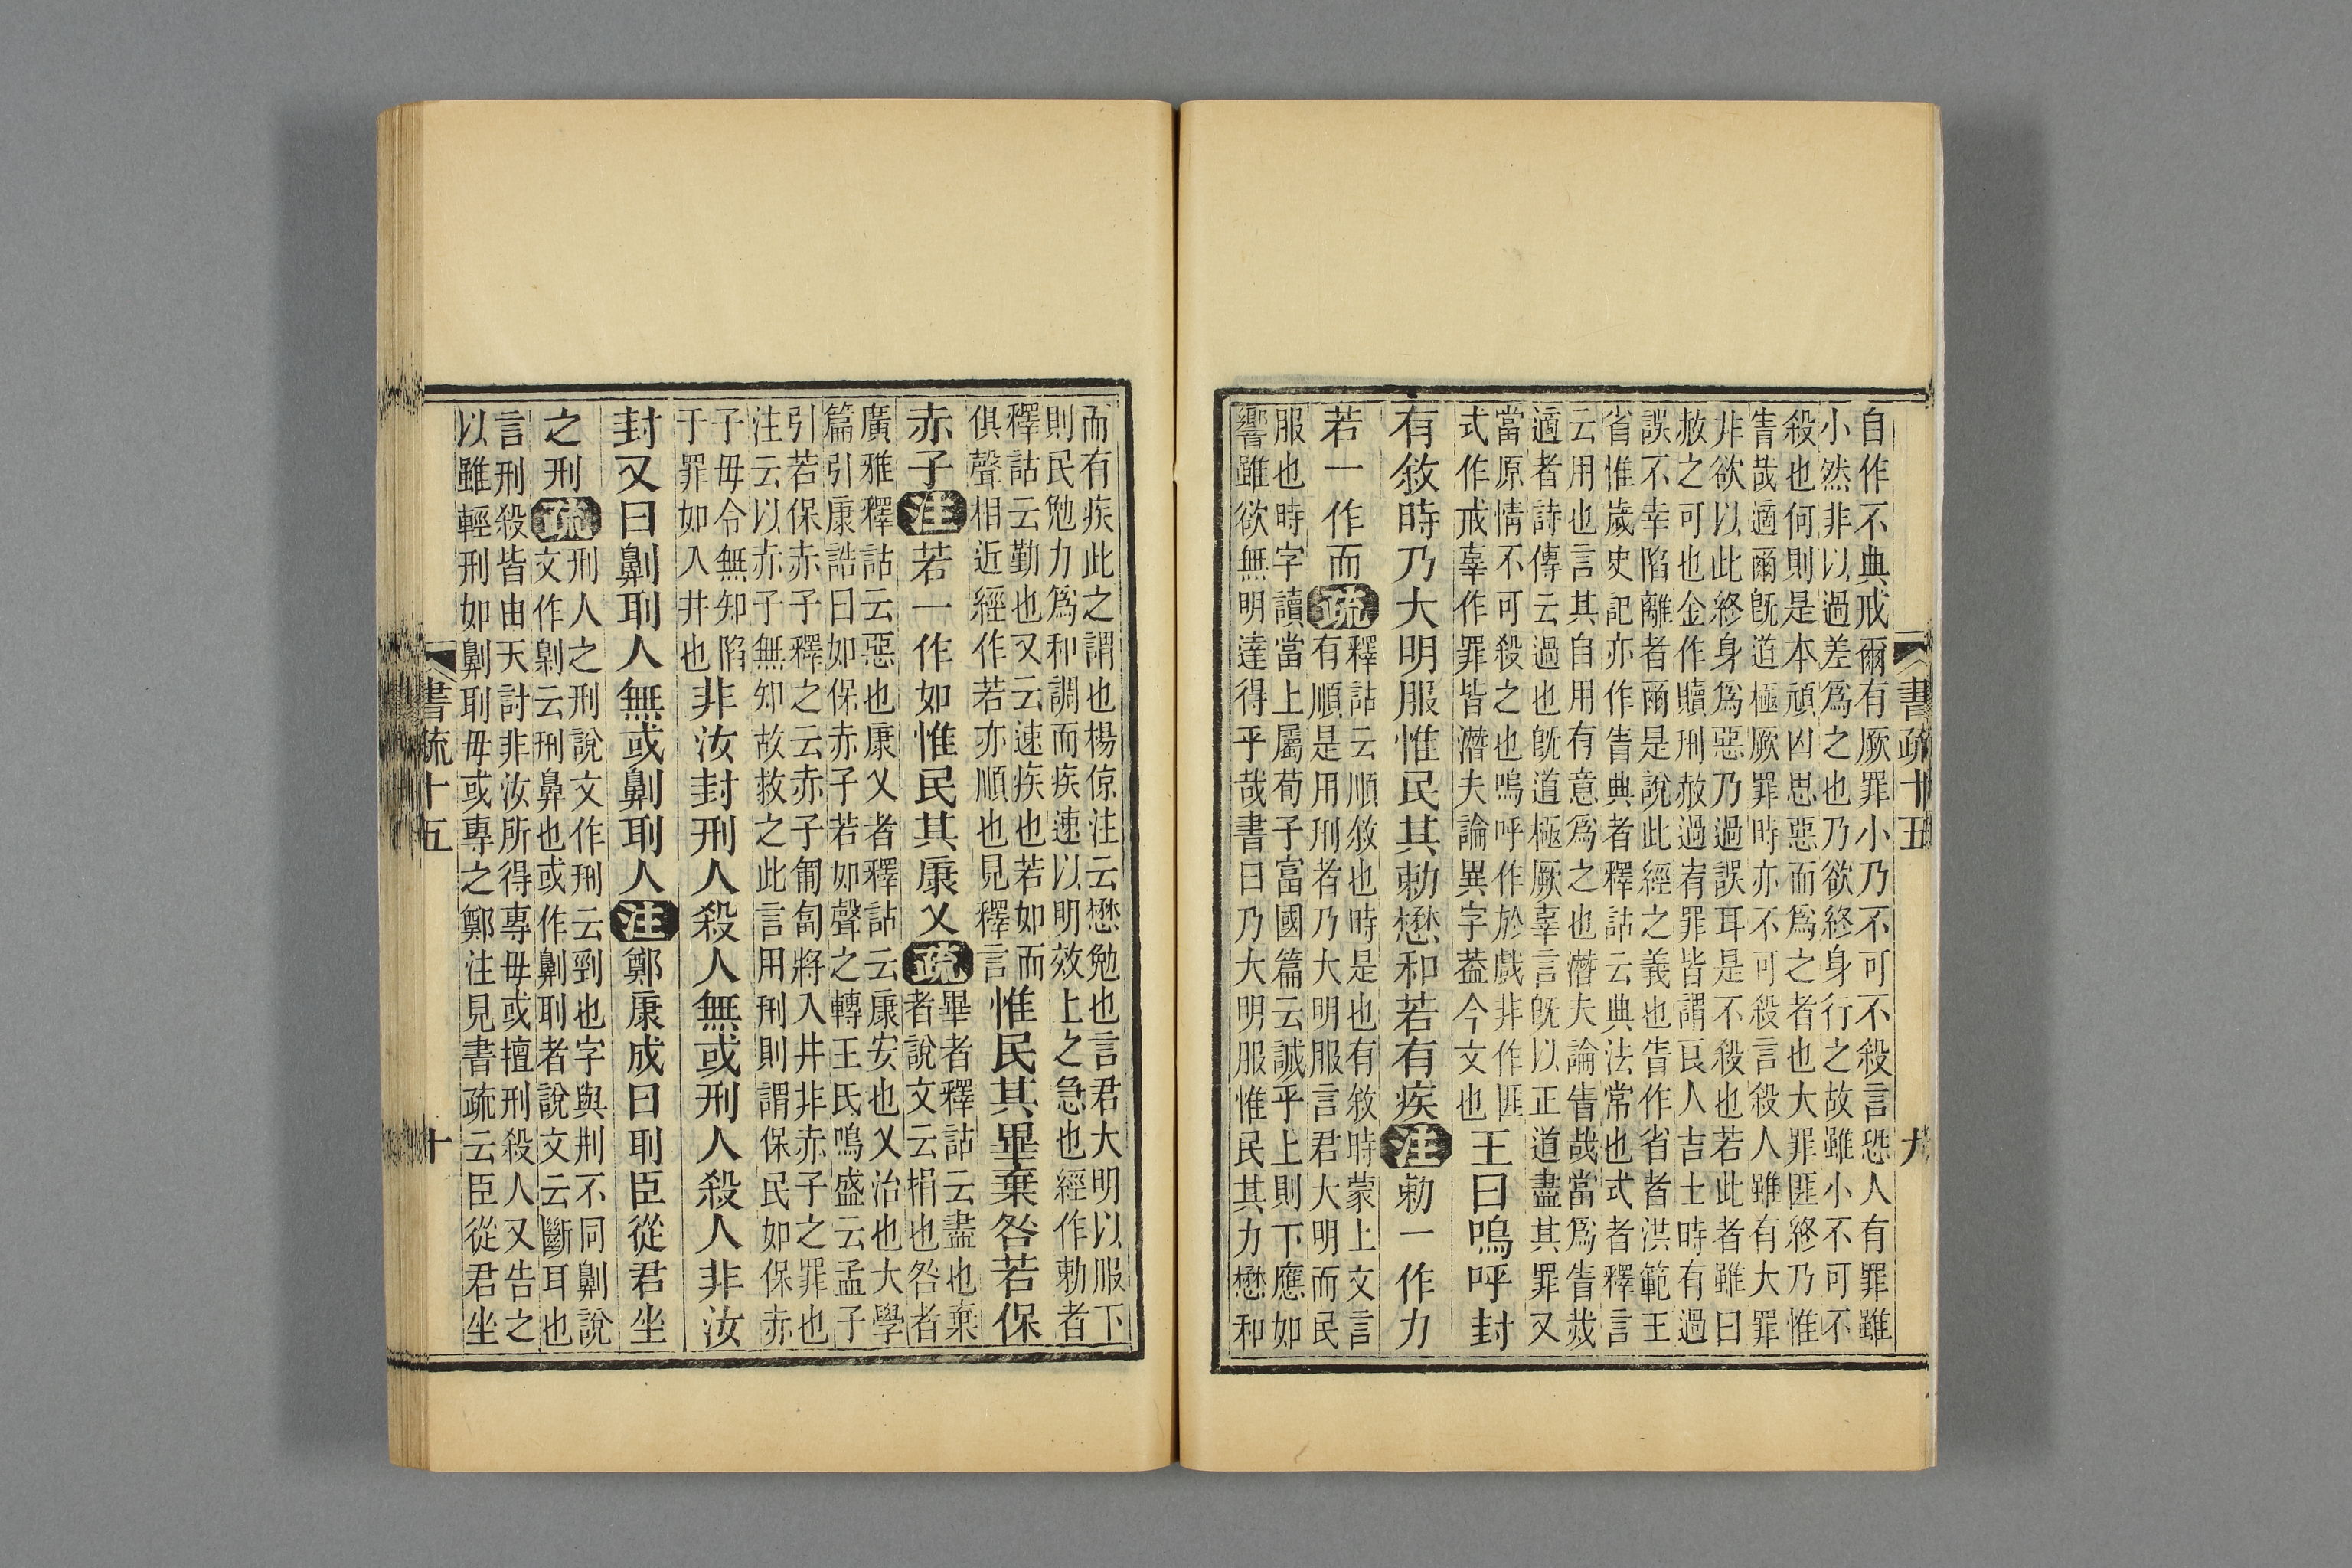 自作不典戒爾有厥罪小乃不可不殺言恐人有罪雖
小然非以過差爲之也乃欲終身行之故雖小不可不
殺也何則是本頑凶思惡而爲之者也大罪匪終乃惟
眚哉適爾旣道極厥罪時亦不可殺言殺人雖有大罪
非欲以此終身爲惡乃過誤耳是不殺也若此者雖曰
赦之可也金作贖刑赦過宥罪皆謂良人吉士時有過
誤不幸陷離者爾是說此經之義也眚作省者洪範王
省惟歲史記亦作眚典者釋詁云典法常也式者釋言
云用也言其自用有意爲之也潛夫論眚哉當爲眚烖
適者詩傳云過也旣道極厥辜言旣以正道盡其罪又
當原情不可殺之也嗚呼作於戲非作匪
式作戒辜作罪皆潛夫論異字葢今文也
王曰嗚呼封
有敘時乃大明服惟民其勑懋和若有疾
注
勑一作力
若一作而
疏
釋詁云順敘也時是也有敘時蒙上文言
有順是用刑者乃大明服言君大明而民
服也時字讀當上屬荀子富國篇云誠乎上則下應如
響雖欲無明達得乎哉書曰乃大明服惟民其力懋和
書疏十五
九
而有疾此之謂也楊倞注云懋勉也言君大明以服下
則民勉力爲和調而疾速以明效上之急也經作勑者
釋詁云勤也又云速疾也若如而
俱聲相近經作若亦順也見釋言
惟民其畢棄咎若保
赤子
注
若一作如惟民其康乂
疏
畢者釋詁云盡也棄
者說文云捐也咎者
廣雅釋詁云惡也康乂者釋詁云康安也乂治也大學
篇引康誥曰如保赤子若如聲之轉王氏鳴盛云孟子
引若保赤子釋之云赤子匍匐將入井非赤子之罪也
注云以赤子無知故救之此言用刑則謂保民如保赤
子毋令無知陷
于罪如入井也
非汝封刑人殺人無或刑人殺人非汝
封又曰劓刵人無或劓刵人
注
鄭康成曰刵臣從君坐
之刑
疏
刑人之刑說文作㓝云剄也字與荆不同劓說
文作劓云刑鼻也或作劓刵者說文云斷耳也
言刑殺皆由天討非汝所得專毋或擅刑殺人又告之
以雖輕刑如劓刵毋或專之鄭注見書疏云臣從君坐
書疏十五
十